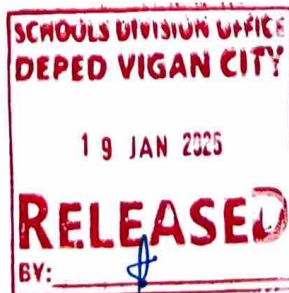 SCHOOLS DIVISION OFFICE
DEPED VIGAN CITY
19 JAN 2026
RELEASED
BY: